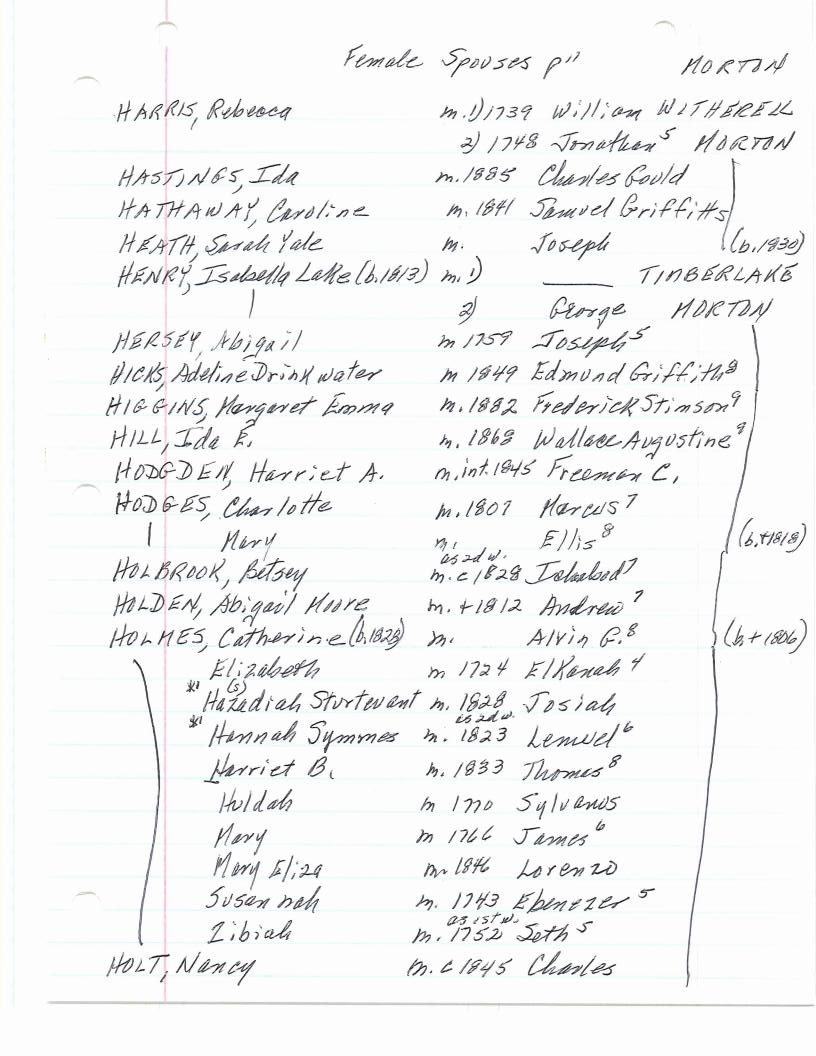 Female Spouses p" MORTON
HARRIS, Rebecca m. 1) 1739 William WITHERELL
2) 1748 Jonathan⁵ MORTON
HASTINGS, Ida m. 1885 Charles Gould
HATHAWAY, Caroline m. 1841 Samuel Griffitts
HEATH, Sarah Yale m. Joseph (b. 1830)
HENRY, Isabella Lake (b. 1813) m. 1) ______ TIMBERLAKE
2) George MORTON
HERSEY, Abigail m 1759 Joseph⁵
HICKS, Adeline Drinkwater m 1849 Edmund Griffith⁸
HIGGINS, Margaret Emma m. 1882 Frederick Stimson⁹
HILL, Ida E. m. 1868 Wallace Augustine⁹
HODGDEN, Harriet A. m. int. 1845 Freeman C.
HODGES, Charlotte m. 1807 Marcus⁷
Mary m. Ellis⁸ (b. +1818)
as 2d w.
HOLBROOK, Betsey m. c 1828 Ichabod⁷
HOLDEN, Abigail Moore m. +1812 Andrew⁷
HOLMES, Catherine (b. 1828) m. Alvin G.⁸ (b. +1806)
Elizabeth m 1724 Elkanah⁴
*' (s)
Hazadiah Sturtevant m. 1828 Josiah
*' as 2d w.
Hannah Symmes m. 1823 Lemuel⁶
Harriet B. m. 1833 Thomas⁸
Huldah m 1770 Sylvanus
Mary m 1766 James⁶
Mary Eliza m. 1846 Lorenzo
Susannah m. 1743 Ebenezer⁵
as 1st w.
Zibiah m. 1752 Seth⁵
HOLT, Nancy m. c 1845 Charles